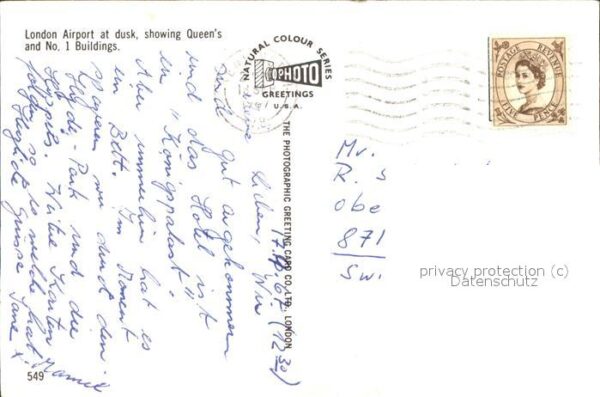 London Airport at dusk, showing Queen's
and No. 1 Buildings.
NATURAL COLOUR SERIES
PHOTO
GREETINGS
U.S.A.
THE PHOTOGRAPHIC GREETING CARD CO. LTD., LONDON
POSTAGE REVENUE
FIVE PENCE
Lieben, Wir
sind gut angekommen
und das Hotel ist
ein "Königspalast".
Aber immerhin hat es
ein Bett. Im Moment
spazieren wir durch den
Hyde-Park und die
Hippies. Karten
folgen, so
Grüsse
Mr.
R. S
Obe
871
Sw.
privacy protection (c)
Datenschutz
549